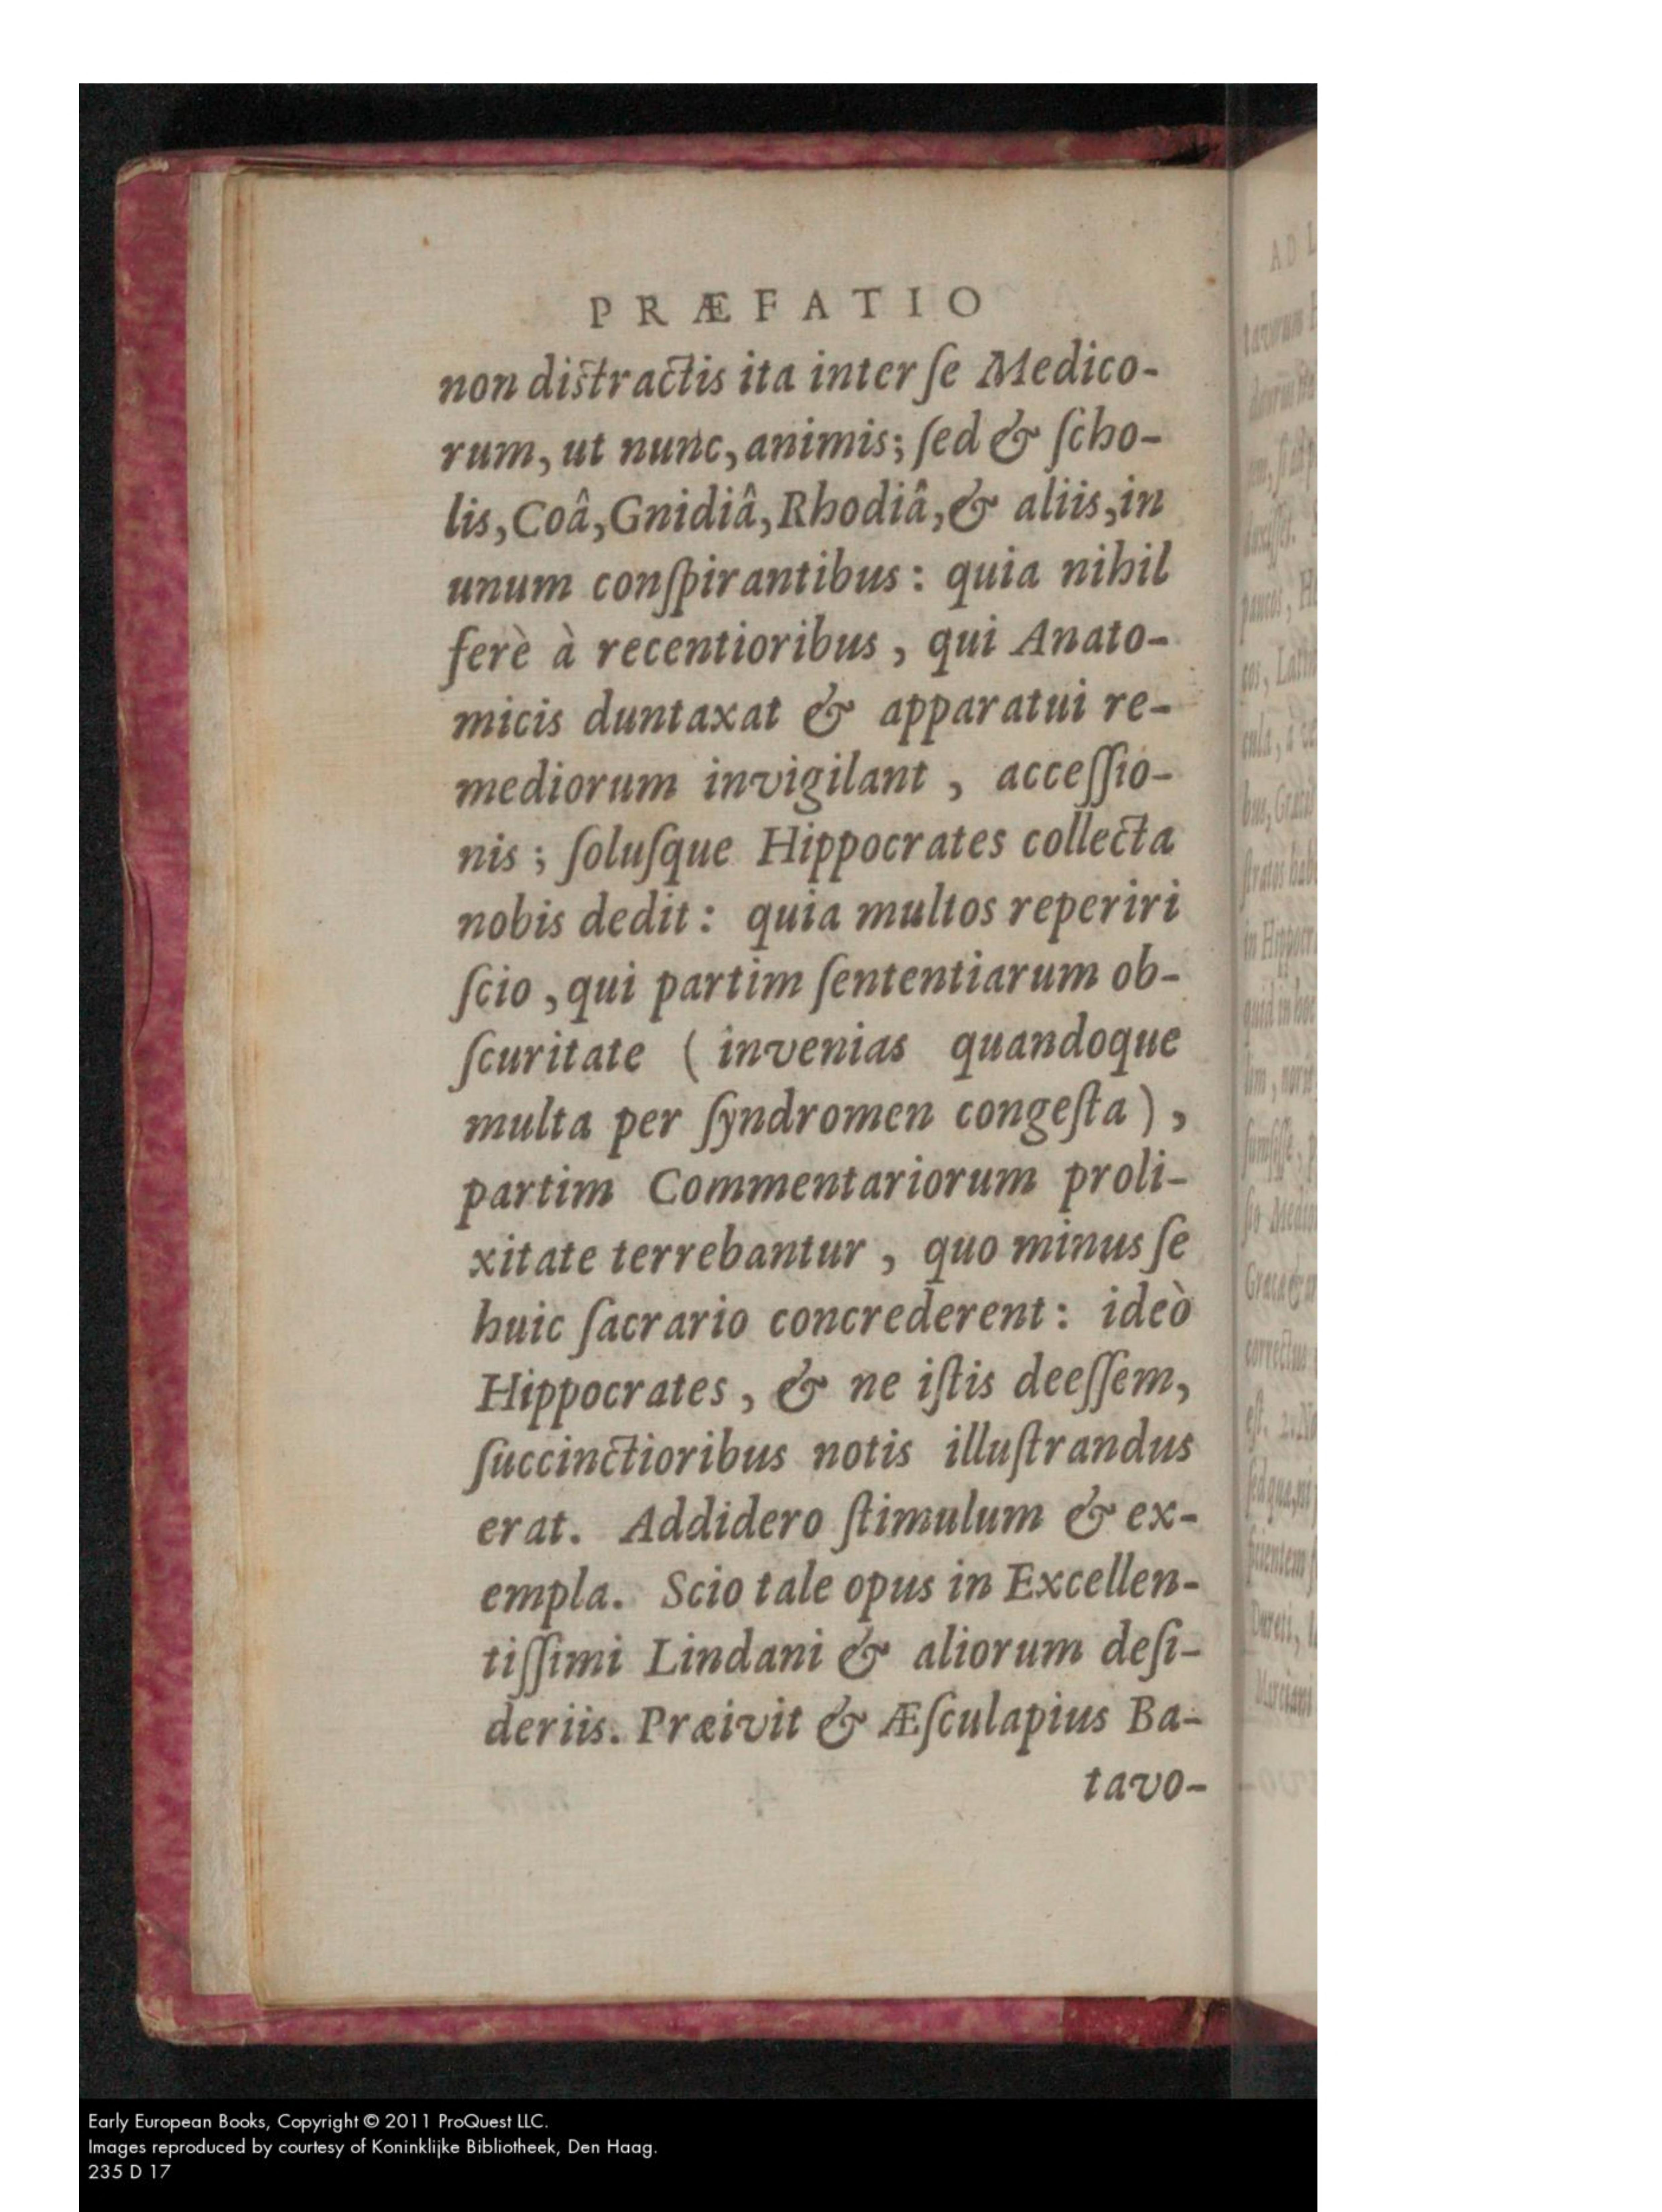 PRÆFATIO
non distractis ita inter ſe Medico-
rum, ut nunc, animis; ſed & ſcho-
lis, Coâ, Gnidiâ, Rhodiâ, & aliis, in
unum conſpirantibus: quia nihil
ferè à recentioribus, qui Anato-
micis duntaxat & apparatui re-
mediorum invigilant, acceſſio-
nis; ſoluſque Hippocrates collecta
nobis dedit: quia multos reperiri
ſcio, qui partim ſententiarum ob-
ſcuritate (invenias quandoque
multa per ſyndromen congeſta),
partim Commentariorum proli-
xitate terrebantur, quo minus ſe
huic ſacrario concrederent: ideò
Hippocrates, & ne iſtis deeſſem,
ſuccinctioribus notis illuſtrandus
erat. Addidero ſtimulum & ex-
empla. Scio tale opus in Excellen-
tiſſimi Lindani & aliorum deſi-
deriis. Præivit & Æſculapius Ba-
tavo-
AD
Early European Books, Copyright © 2011 ProQuest LLC.
Images reproduced by courtesy of Koninklijke Bibliotheek, Den Haag.
235 D 17